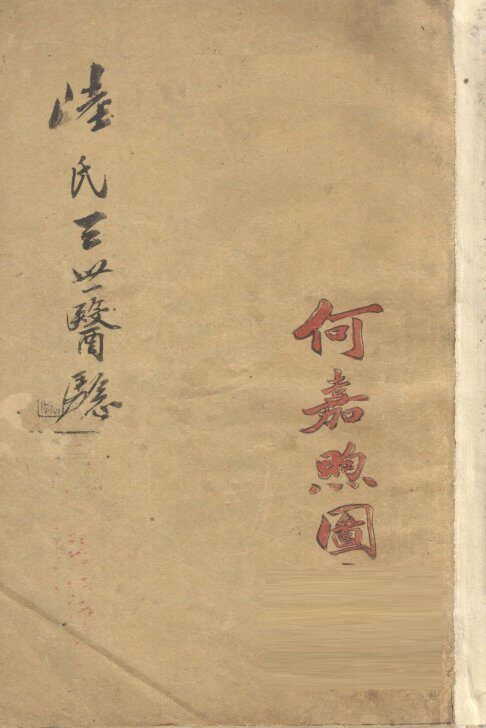 何嘉煦圖
陸氏三世醫驗